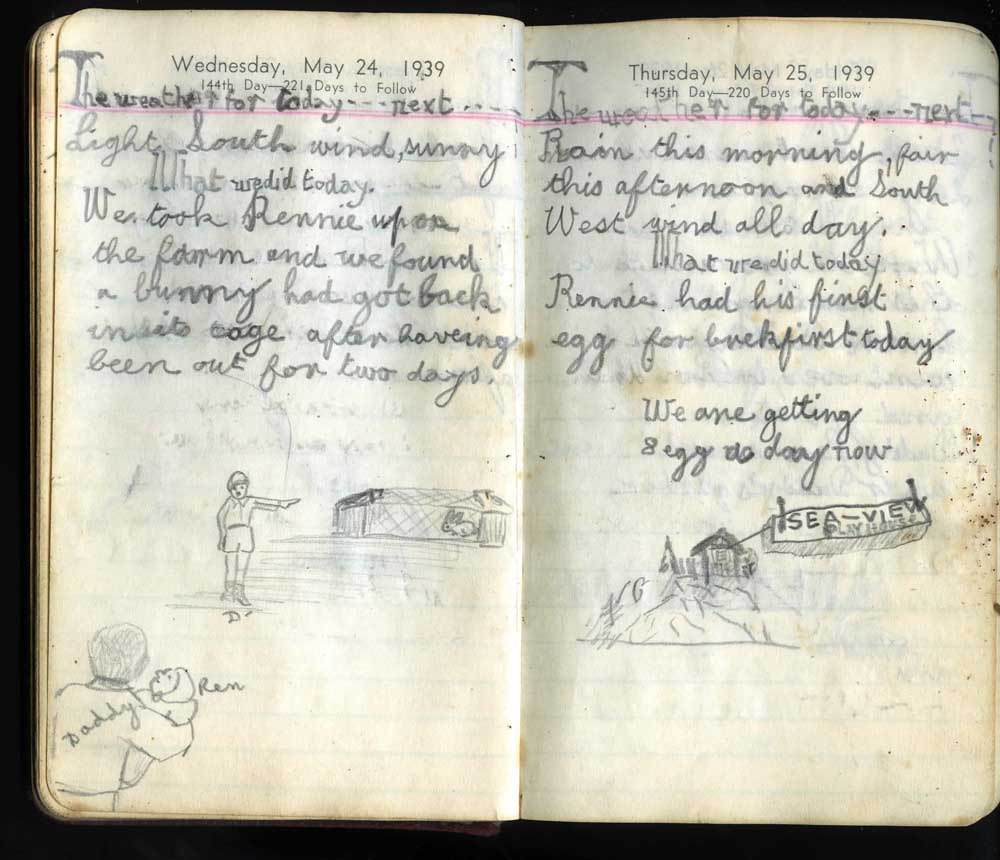 Wednesday, May 24, 1939
144th Day—221 Days to Follow
The weather for today---next....
Light South wind, sunny
What we did today.
We took Rennie upon
the farm and we found
a bunny had got back
in its cage after haveing
been out for two days.
D-
Daddy
Ren
Thursday, May 25, 1939
145th Day—220 Days to Follow
The weather for today---next
Rain this morning, fair
this afternoon and South
West wind all day.
What we did today
Rennie had his first
egg for brekfirst today
We are getting
8 egg a day now
SEA-VIEW
PLAYHOUSE